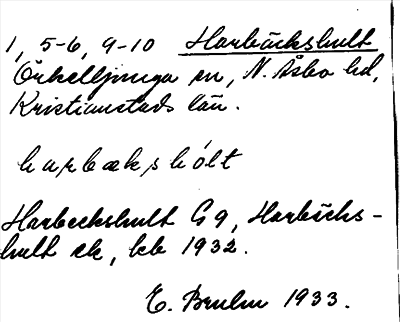 1, 5-6, 9-10 Harbäckshult
Örkelljunga sn, N. Åsbo hd,
Kristianstads län.
harbækshólt
Harbeckshult G9, Harbäcks-
hult ek, kb 1932.
E. Bruhn 1933.